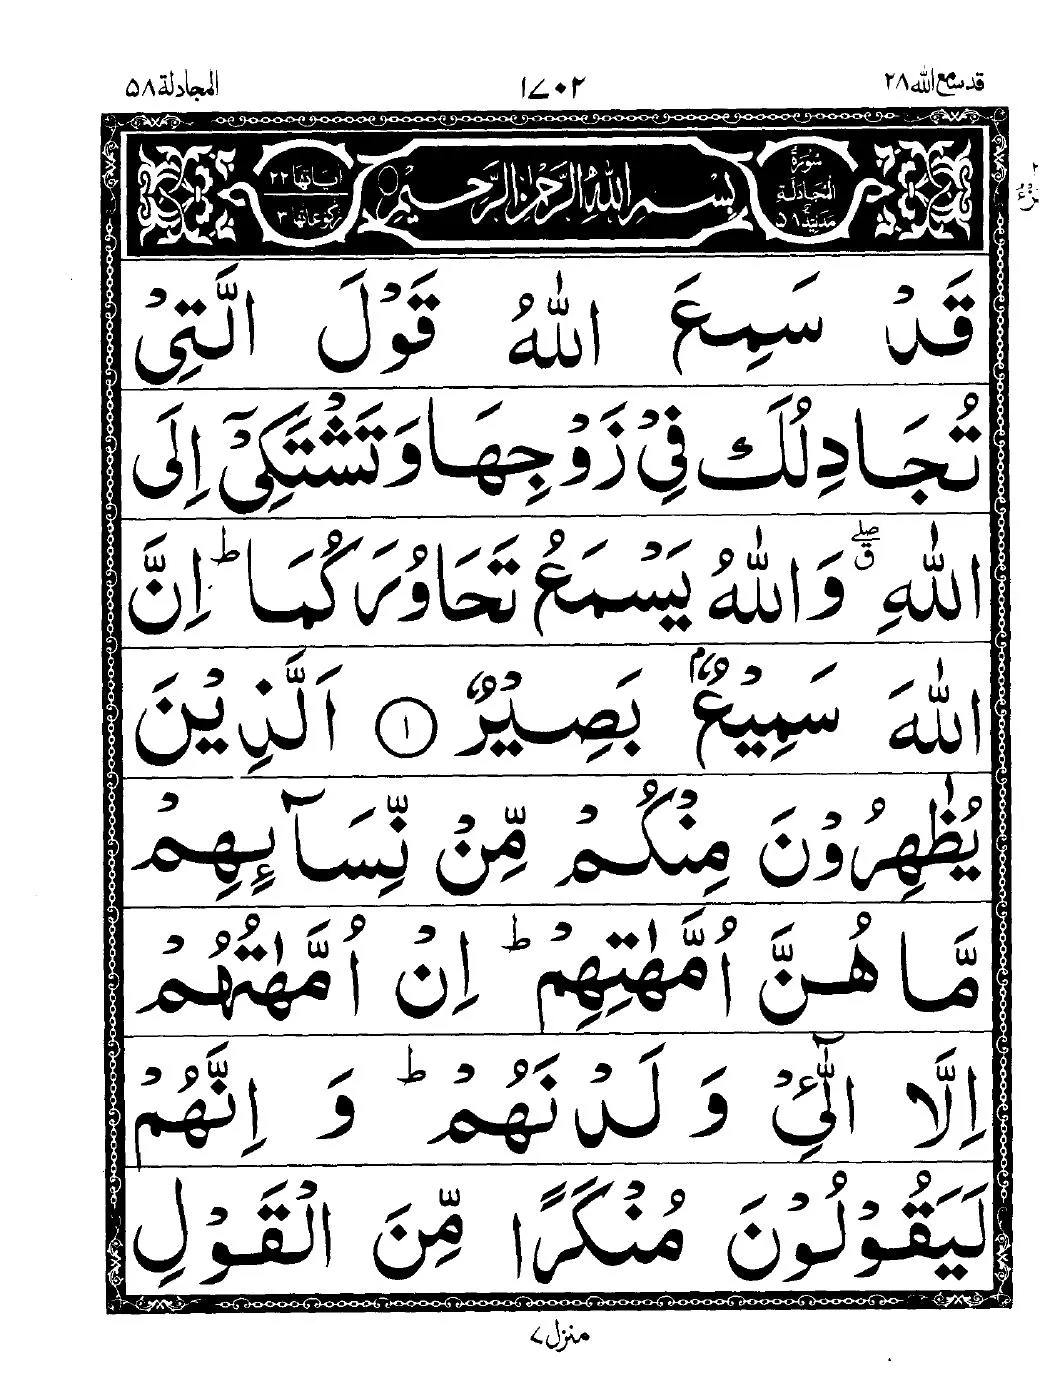 قد سمع الله ٢٨
١٧٠٢
المجادلة ٥٨
سُوْرَةُ
الْمُجَادِلَةِ
بِسْمِ اللهِ الرَّحْمٰنِ الرَّحِيْمِ
اٰيَاتُهَا ٢٢
رُكُوْعَاتُهَا ٣
قَدْ سَمِعَ اللّٰهُ قَوْلَ الَّتِیْ
تُجَادِلُكَ فِیْ زَوْجِهَا وَتَشْتَكِیْۤ اِلَی
اللّٰهِ ۖق وَاللّٰهُ یَسْمَعُ تَحَاوُرَكُمَا ؕ اِنَّ
اللّٰهَ سَمِیْعٌۢ بَصِیْرٌ ۝١ اَلَّذِیْنَ
یُظٰهِرُوْنَ مِنْكُمْ مِّنْ نِّسَآىِٕهِمْ
مَّا هُنَّ اُمَّهٰتِهِمْ ؕ اِنْ اُمَّهٰتُهُمْ
اِلَّا الّٰٓیِٔ وَلَدْنَهُمْ ؕ وَاِنَّهُمْ
لَیَقُوْلُوْنَ مُنْكَرًا مِّنَ الْقَوْلِ
منزل ٧